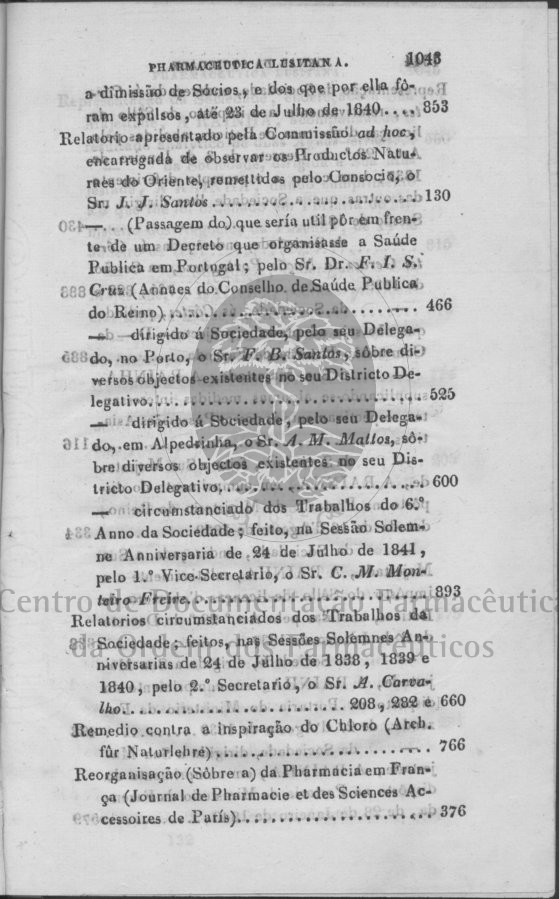 PHARMACEUTICA LUSITANA. 1043
a dimissão de Sócios, e dos que por ella fô-
ram expulsos, até 23 de Julho de 1840.... 853
Relatorio apresentado pela Commissão ad hoc,
encarregada de observar os Productos Natu-
raes do Oriente, remettidos pelo Consocio, o
Sr. J. J. Santos ...................... 130
—... (Passagem do) que sería util pôr em fren-
te de um Decreto que organisasse a Saúde
Publica em Portugal; pelo Sr. Dr. F. I. S.
Cruz (Annaes do Conselho de Saúde Publica
do Reino) ........................... 466
— dirigido á Sociedade, pelo seu Delega-
do, no Porto, o Sr. F. B. Santos, sôbre di-
versos objectos existentes no seu Districto De-
legativo............................. 525
— dirigido á Sociedade, pelo seu Delega-
do, em Alpedrinha, o Sr. A. M. Mattos, sô-
bre diversos objectos existentes no seu Dis-
tricto Delegativo..................... 600
— circumstanciado dos Trabalhos do 6.º
Anno da Sociedade; feito, na Sessão Solem-
ne Anniversaria de 24 de Julho de 1841,
pelo 1.º Vice-Secretario, o Sr. C. M. Mon-
teiro Freire.......................... 893
Centro de Documentação Farmacêutica
Relatorios circumstanciados dos Trabalhos da
Sociedade; feitos, nas Sessões Solemnes An-
da Ordem dos Farmacêuticos
niversarias de 24 de Julho de 1838, 1839 e
1840, pelo 2.º Secretario, o Sr. A. Carva-
lho...................... 208, 282 e 660
Remedio contra a inspiração do Chloro (Arch.
für Naturlehre)....................... 766
Reorganisação (Sôbre a) da Pharmacia em Fran-
ça (Journal de Pharmacie et des Sciences Ac-
cessoires de París)..................... 376